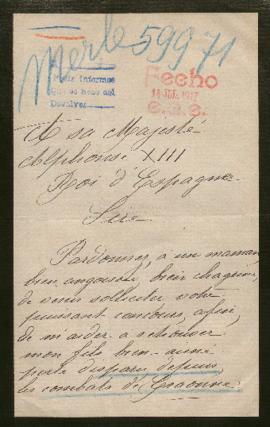 Merle 59971
Pedir informes
Devolver
Fecho
14 JUL. 1917
A sa Majesté
Alphonse XIII
Roi d'Espagne
Sire
Pardonnez, a un maman
bien angoissée, bien chagrine,
de venir solliciter votre
puissant concours, afin
de m'aider a retrouver
mon fils bien-aimé
porté disparu depuis
les combats de Craonne.